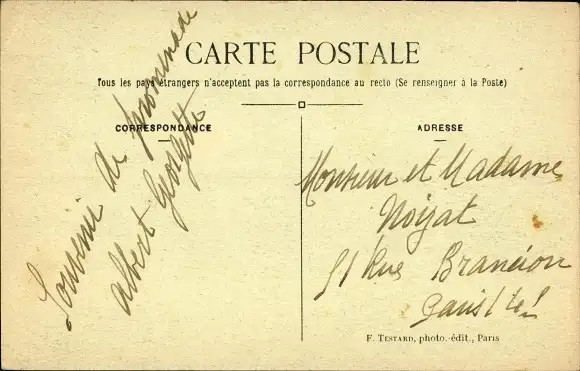 CARTE POSTALE
Tous les pays étrangers n'acceptent pas la correspondance au recto (Se renseigner à la Poste)
CORRESPONDANCE
Souvenir de promenade
Albert Georgette
ADRESSE
Monsieur et Madame
Noizat
51 Rue Brancion
Paris
F. TESTARD, photo.-édit., Paris